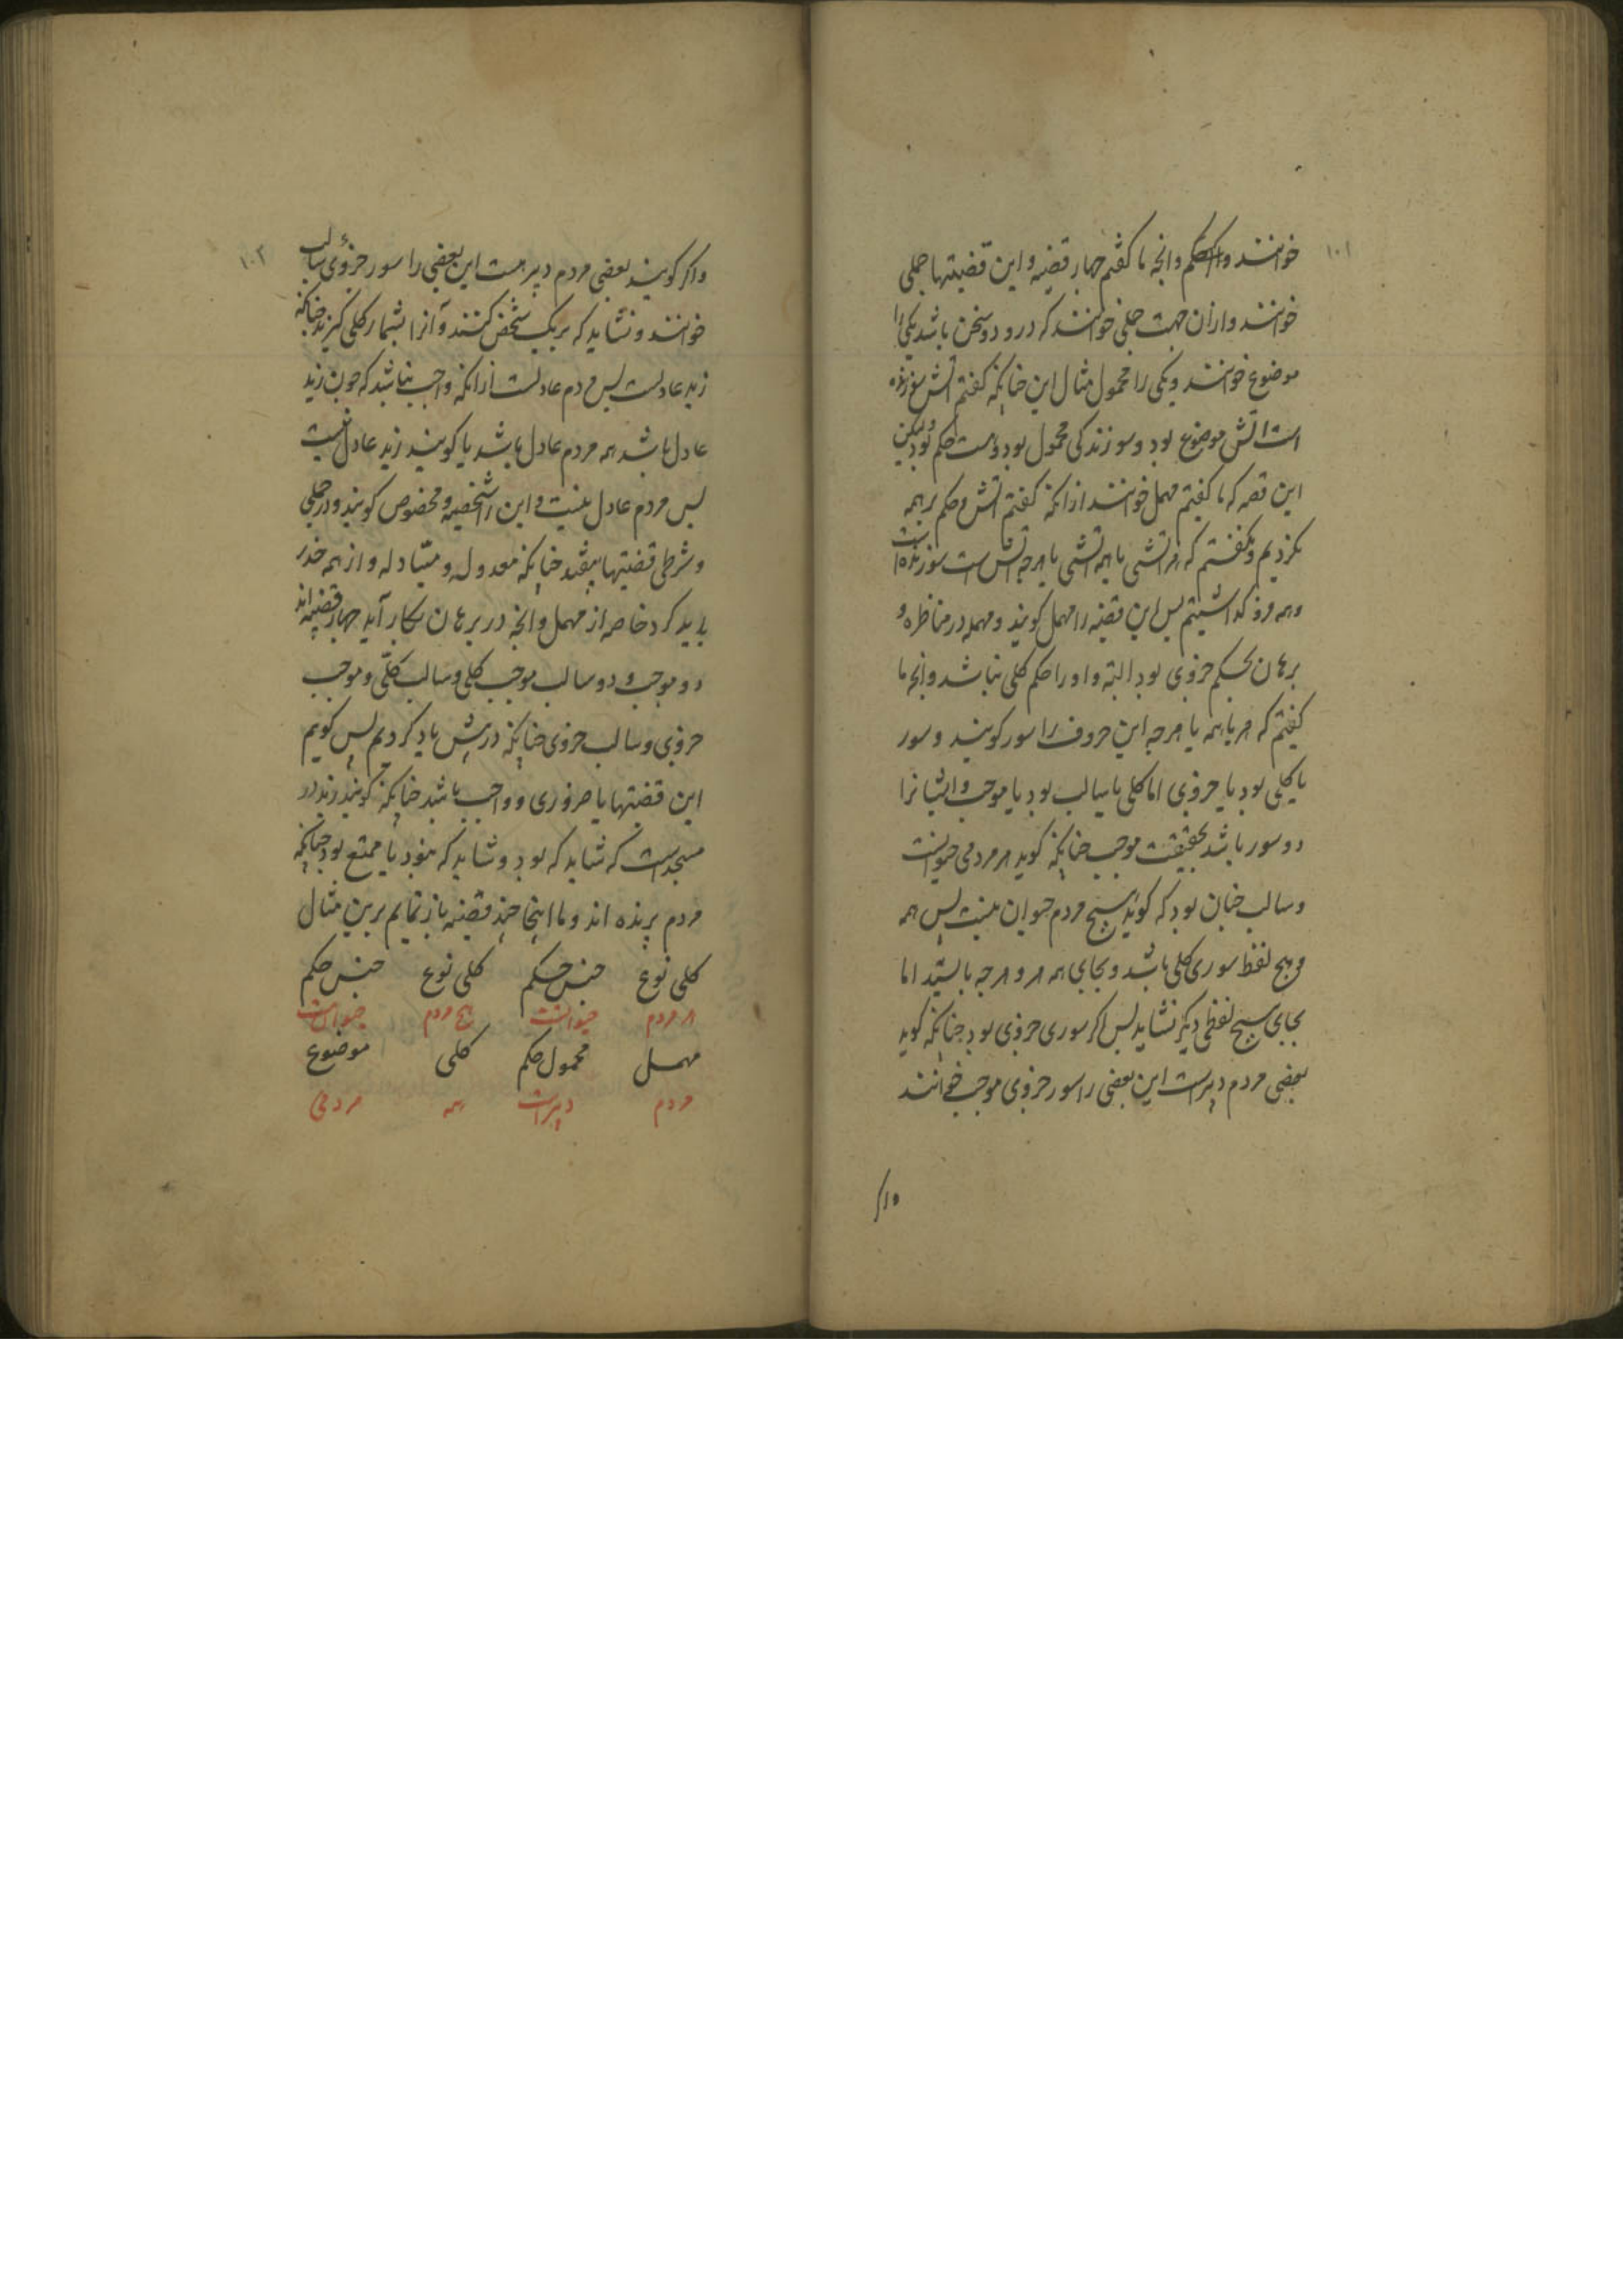 ۱۰۱
خوانند و حکم وانچه ما کفتیم چهار قضیه و این قضیتها حملی
خوانند و ازان جهت حملی خوانند که درو دو سخن باشد یکی را
موضوع خوانند و یکی را محمول مثال این چنانکه کفتم آتش سوزنده
است آتش موضوع بود و سوزندکی محمول بود و است حکم بود ولیکن
این قصه که ما کفتیم مهمل خوانند ازانکه کفتم آتش و حکم بر همه
نکردیم و نکفتیم که هر آتشی یا همه آتشی یا هرچه آتش است سوزنده است
وهمه فرو کذاشتیم پس این قضیه را مهمل کویند و مهمله در مناظره و
برهان بحکم جزوی بود البته و او را حکم کلی نباشد وانچه ما
کفتیم که هر یا همه یا هرچه این حروف را سور کویند و سور
یا کلی بود یا جزوی اما کلی یا سالب بود یا موجب و ایشانرا
دو سور باشد بحقیقت موجب چنانکه کوید هر مردمی حیوانست
و سالب چنان بود که کوید هیچ مردم حیوان نیست پس همه
و هیچ لفظ سوری کلی باشد و بجای همه هر و هرچه بایستد اما
بجای هیچ لفظی دیکر نشاید پس اکر سوری جزوی بود چنانکه کوید
بعضی مردم دبیرست این بعضی را سور جزوی موجب خوانند
واکر
۱۰۲
واکر کویند بعضی مردم دبیر نیست این بعضی را سور جزوی سالب
خوانند و نشاید که بر یک شخص کنند و آنرا بشمار کلی کیرند چنانکه
زید عادلست پس مردم عادلست ازانکه واجب نباشد که چون زید
عادل باشد همه مردم عادل باشد یا کویند زید عادل نیست
پس مردم عادل نیست و این را شخصیه و مخصوص کویند و در حملی
و شرطی قضیتها بیفتد چنانکه معدوله و متبادله و از همه حذر
باید کرد خاصه از مهمل وانچه در برهان بکار آید چهار قضیه اند
دو موجب و دو سالب موجب کلی و سالب کلی و موجب
جزوی و سالب جزوی چنانکه در پیش یاد کردیم پس کویم
این قضیتها یا ضروری و واجب باشد چنانکه کویند زید در
مسجدست که شاید که بود و شاید که نبود یا ممتنع بود چنانکه
مردم پرنده اند و ما اینجا چند قضیه باز نمایم برین مثال
کلی نوع جنس حکم کلی نوع جنس حکم
هر مردم حیوانست هیچ مردم حیوان نیست
مهمل محمول حکم کلی موضوع
مردم دبیرست همه مردمی